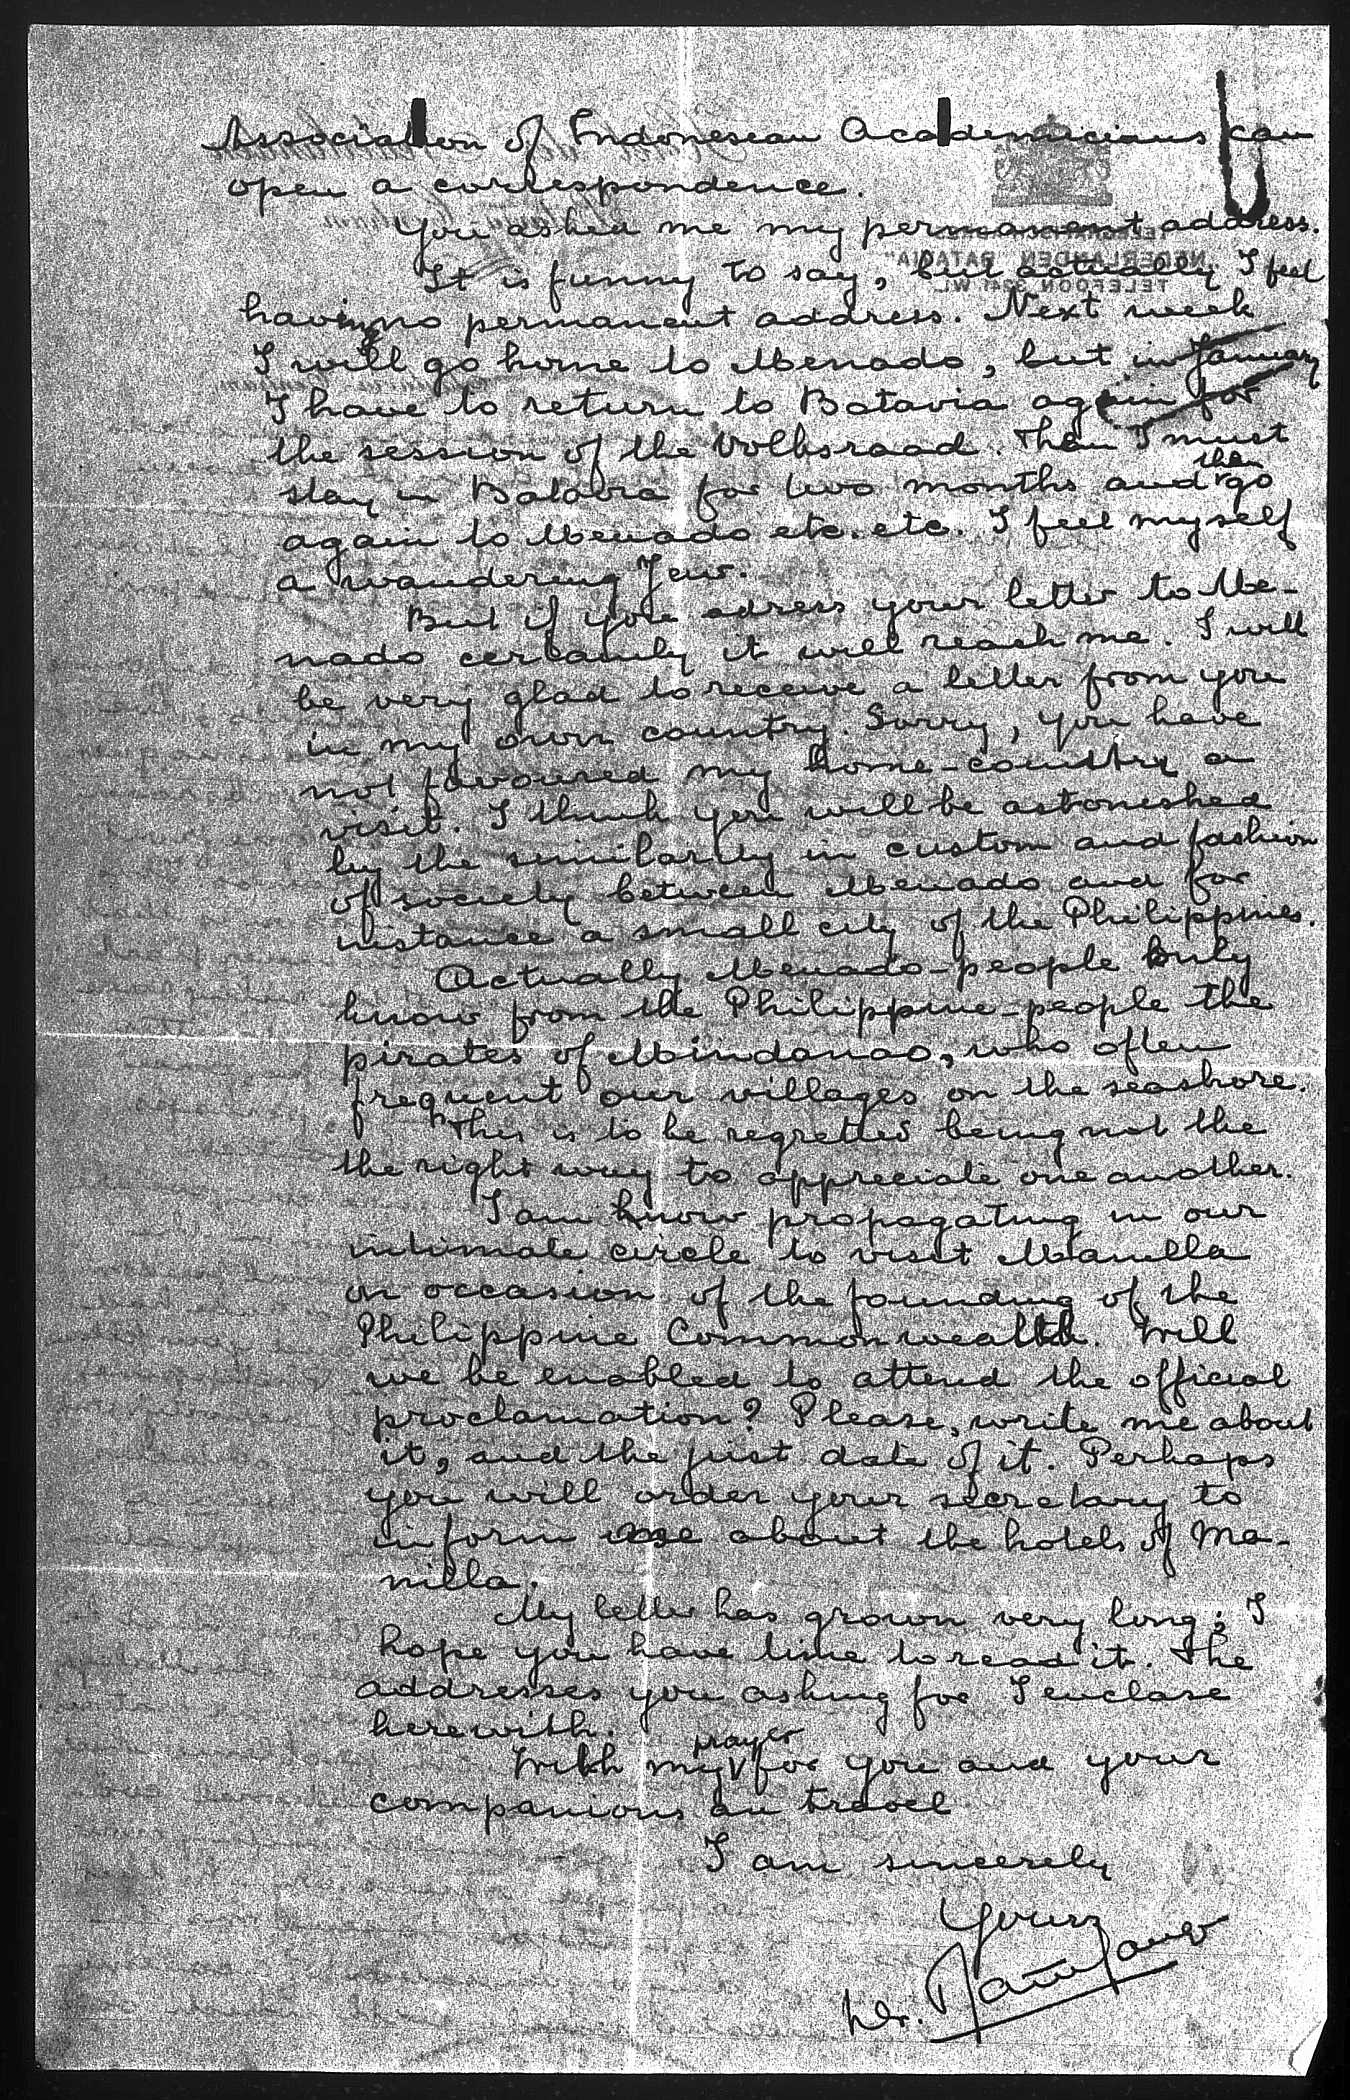 Association of Indonesean Academicians can
open a correspondence.
You asked me my permanent address.
It is funny to say, but actually I feel
having no permanent address. Next week
I will go home to Menado, but in January
I have to return to Batavia again for
the session of the Volksraad. Then I must
stay in Batavia for two months and then go
again to Menado etc. etc. I feel myself
a wandering Jew.
But if you adress your letter to Me-
nado certainly it will reach me. I will
be very glad to receive a letter from you
in my own country. Sorry, you have
not favoured my home-country a
visit. I think you will be astonished
by the similarity in custom and fashion
of society between Menado and for
instance a small city of the Philippines.
Actually Menado-people only
know from the Philippine-people the
pirates of Mindanao, who often
frequent our villages on the seashore.
This is to be regretted being not the
the right way to appreciate one another.
I am know propagating in our
intimate circle to visit Manella
on occasion of the founding of the
Philippine Commonwealth. Will
we be enabled to attend the official
proclamation? Please, write me about
it, and the just date of it. Perhaps
you will order your secretary to
inform me about the hotels of Ma-
nilla.
My letter has grown very long; I
hope you have time to read it. The
addresses you asking for I enclose
herewith.
With my prayer for you and your
companions an travel
I am sincerely
Yours
Dr.
NEDERLANDEN BATAVIA
TELEFOON